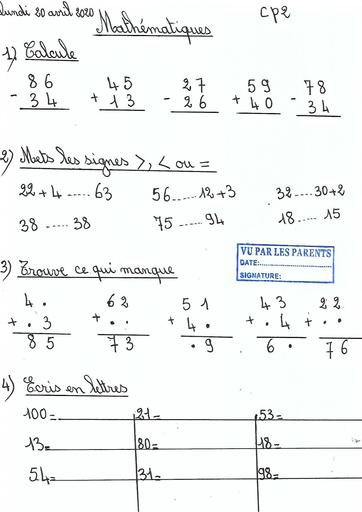 Lundi 20 avril 2020 CP2
Mathématiques
1) Calcule
86 45 27 59 78
- 34 + 13 - 26 + 40 - 34
2) Mets les signes >, < ou =
22+4 ..... 63 56 ...... 12+3 32 .... 30+2
38 ..... 38 75 ...... 94 18 .... 15
VU PAR LES PARENTS
DATE:
SIGNATURE:
3) Trouve ce qui manque
4. 62 51 43 22
+ .3 + .. + 4. + .4 + ..
85 73 .9 6. 76
4) Ecris en lettres
100= 21= 53=
13= 80= 18=
54= 31= 98=